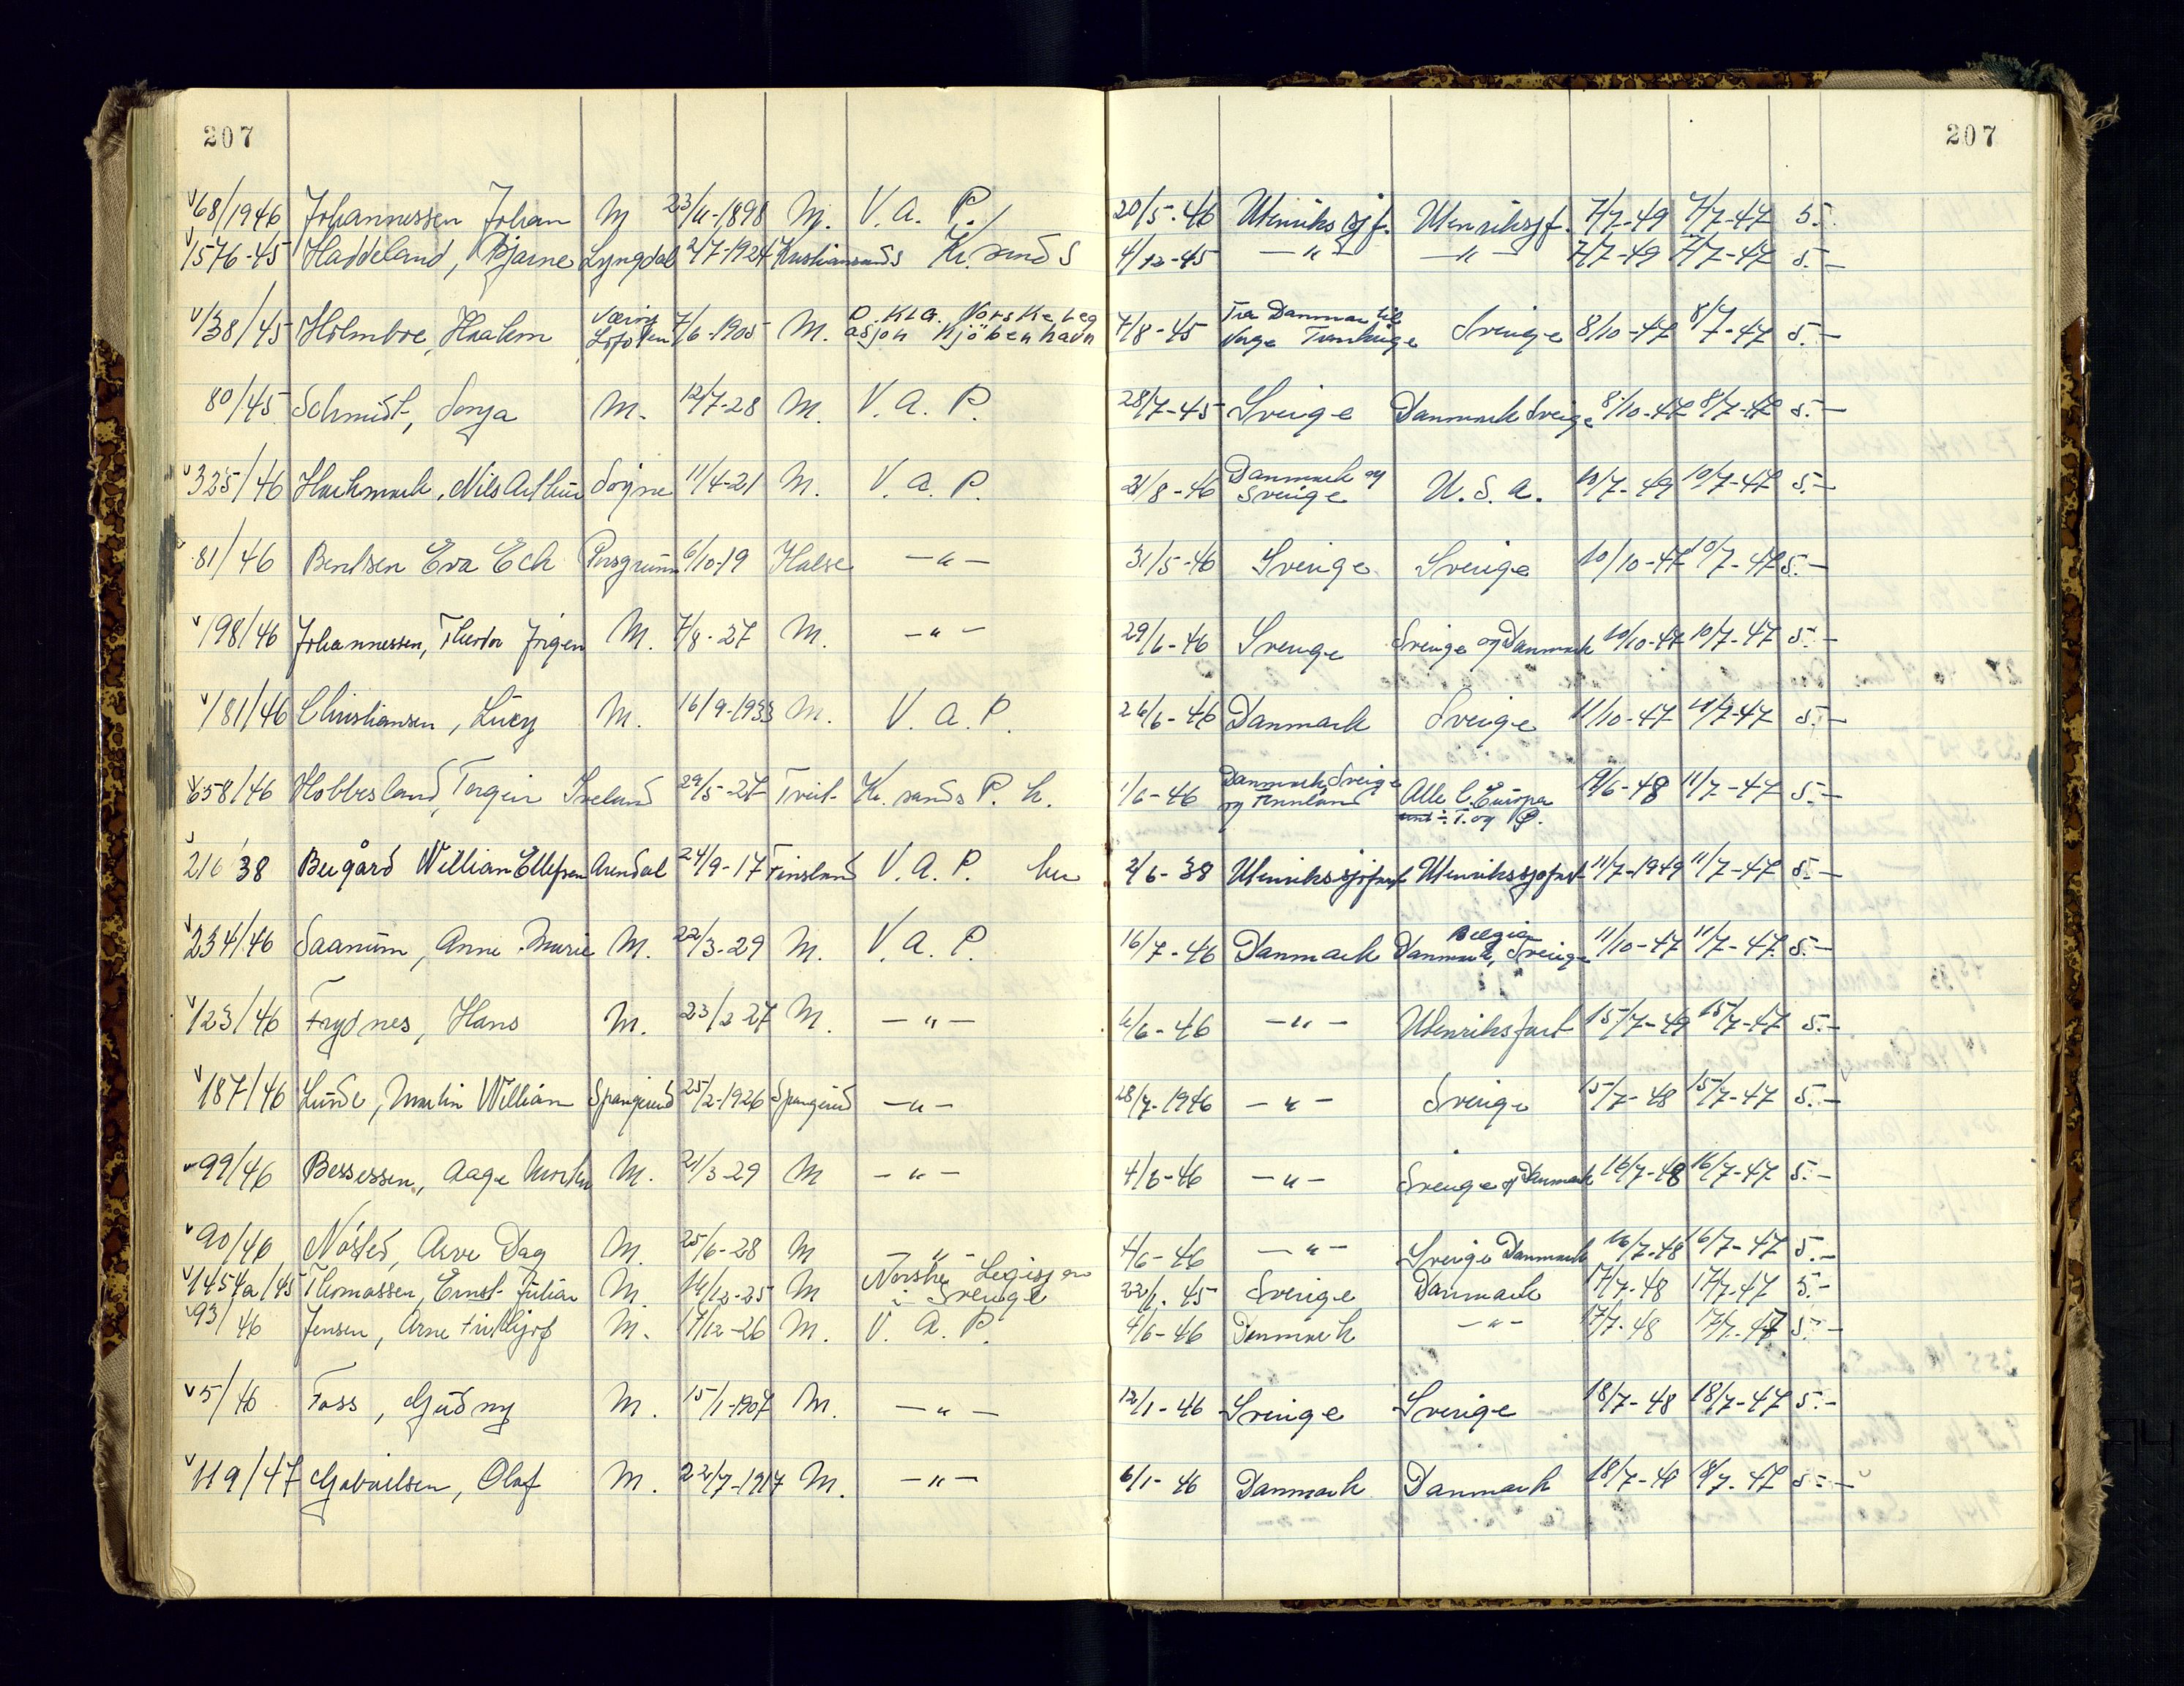 207 207
68/1946 Johannessen Johan M 23/11-1898 M. V. A. P. 20/5-46 Utenriks sjf. Utenrikssjf. 7/7-49 7/7-47 5.-
1576-45 Haddeland, Bjarne Lyngdal 2/7-1924 Kristiansands Kr. sands 4/12-45 -"- -"- 7/7-49 7/7-47 5.-
Værøy P. Kta. Norske Leg Fra Danmark til
138/45 Holmboe, Haakon Lofoten 7/6-1905 M. asjon Kjöbenhavn 7/8-45 Norge Sverige 8/10-47 8/7-47 5.-
80/45 Schmidt, Sonja M. 12/7-28 M. V. A. P. 28/7-45 Sverige Danmark Sverige 8/10-47 8/7-47 5.-
Danmark og
325/46 Nils Arthur Søgne 11/4-21 M. V. A. P. 21/8-46 Sverige U. S. A. 10/7-49 10/7-47 5.-
81/46 Bentsen Eva Eck Porsgrunn 6/10-19 Halse -"- 31/5-46 Sverige Sverige 10/10-47 10/7-47 5.-
198/46 Johannessen, Theodor Jörgen M. 7/8-27 M. -"- 29/6-46 Sverige Sverige og Danmark 10/10-47 10/7-47 5.-
181/46 Christiansen, Lucy M. 16/9-1933 M. V. A. P. 26/6-46 Danmark Sverige 11/10-47 11/7-47 5.-
Danmark, Sverige
658/46 Hobbesland, Torgeir Iveland 29/5-27 Tveit Kr. sands P. k. 1/6-46 og Finnland Alle l. Europa 19/6-48 11/7-47 5.-
÷ T. og P.
216 38 William Ellefsen Arendal 24/9-17 Finsland V. A. P. 2/6-38 Utenrikssjöfart Utenrikssjøfart 11/7-1949 11/7-47 5.-
Belgia
234/46 Saanum, Anne Marie M. 22/3-29 M. V. A. P. 16/7-46 Danmark Danmark, Sverige 11/10-47 11/7-47 5.-
123/46 Frydnes, Hans M. 23/2-27 M. -"- 11/6-46 -"- Utenriksfart 15/7-49 15/7-47 5.-
187/46 Lunde, Martin William Spangereid 25/2-1926 Spangereid -"- 28/7-1946 -"- Sverige 15/7-48 15/7-47 5.-
99/46 Bessessen, Aage Morten M. 21/3-29 M -"- 4/6-46 -"- Sverige og Danmark 16/7-48 16/7-47 5.-
90/46 Nösted, Arve Dag M. 25/6-28 M -"- 4/6-46 -"- Sverige Danmark 16/7-48 16/7-47 5.-
Norske Legasjon
1454a/45 Thomassen, Ernst Julian M. 16/12-25 M i Sverige 22/6-45 Sverige Danmark 17/7-48 17/7-47 5.-
93/46 Jensen, Arne Fridtjof M. 17/12-26 M. V. A. P. 4/6-46 Danmark -"- 17/7-48 17/7-47 5.-
5/46 Foss, Gudny M. 15/1-1907 M. -"- 12/1-46 Sverige Sverige 18/7-48 18/7-47 5.-
119/47 Gabrielsen, Olaf M. 22/7-1917 M. -"- 6/1-46 Danmark Danmark 18/7-48 18/7-47 5.-